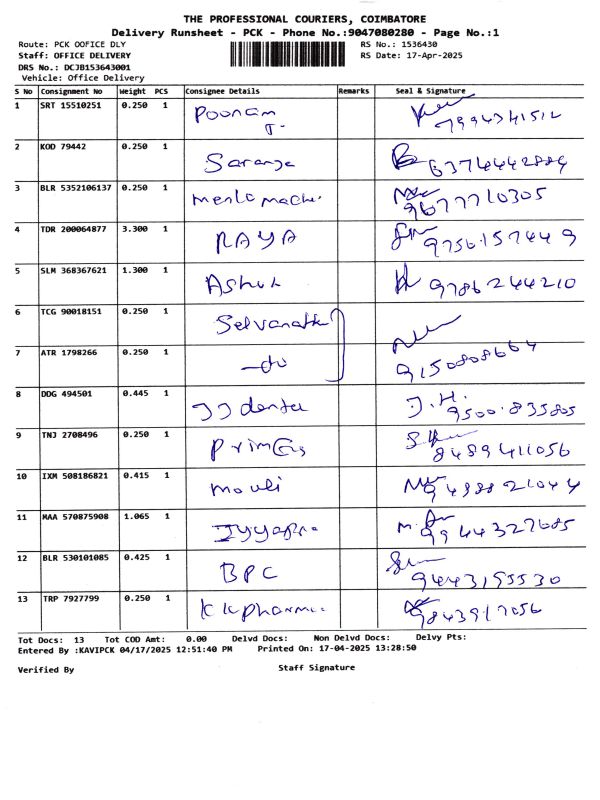 THE PROFESSIONAL COURIERS, COIMBATORE
Delivery Runsheet - PCK - Phone No.:9047080280 - Page No.:1
Route: PCK OOFICE DLY RS No.: 1536430
Staff: OFFICE DELIVERY RS Date: 17-Apr-2025
DRS No.: DCJB153643001
Vehicle: Office Delivery
S No Consignment No Weight PCS Consignee Details Remarks Seal & Signature
1 SRT 15510251 0.250 1 Poonam
T. 7994341512
2 KOD 79442 0.250 1 Saranya 6374442884
3 BLR 5352106137 0.250 1 9677710305
4 TDR 200064877 3.300 1 RAYA 9756157449
5 SLM 368367621 1.300 1 Ashok 9786244210
6 TCG 90018151 0.250 1
7 ATR 1798266 0.250 1 -do 9150808664
8 DDG 494501 0.445 1 JJ dental J.H. 95001835805
9 TNJ 2708496 0.250 1 8489411056
10 IXM 508186821 0.415 1 mouli
11 MAA 570875908 1.065 1 9944327685
12 BLR 530101085 0.425 1 BPC
13 TRP 7927799 0.250 1 KK pharma 9843917056
Tot Docs: 13 Tot COD Amt: 0.00 Delvd Docs: Non Delvd Docs: Delvy Pts:
Entered By :KAVIPCK 04/17/2025 12:51:40 PM Printed On: 17-04-2025 13:28:50
Verified By Staff Signature